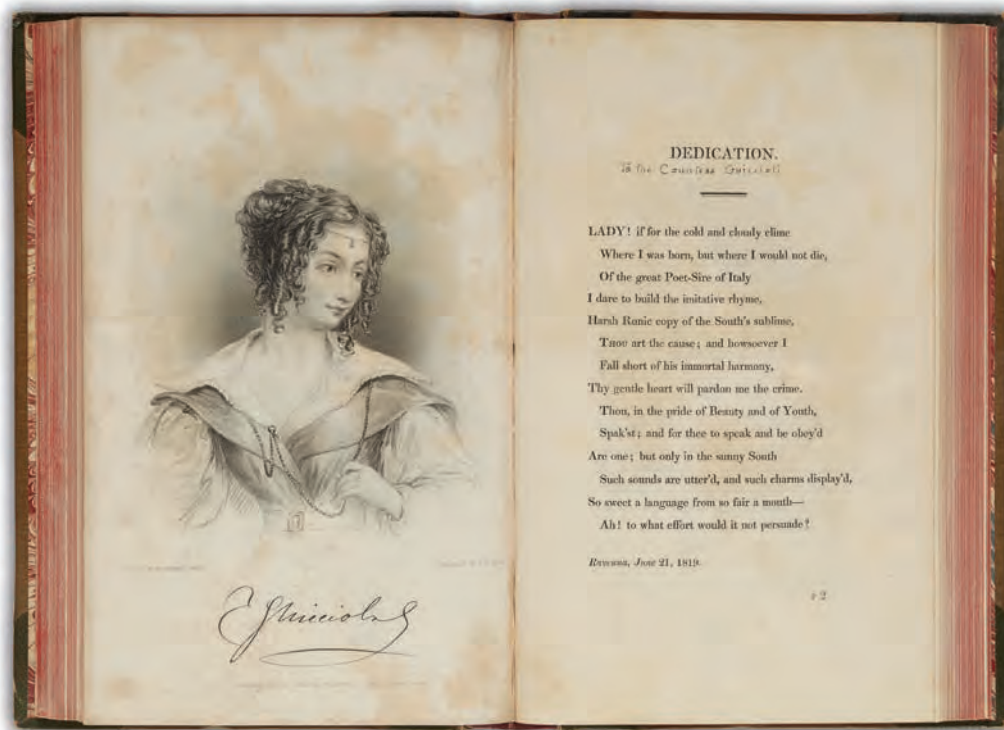 Guiccioli
DEDICATION.
To the Countess Guiccioli
LADY! if for the cold and cloudy clime
Where I was born, but where I would not die,
Of the great Poet-Sire of Italy
I dare to build the imitative rhyme,
Harsh Runic copy of the South's sublime,
THOU art the cause; and howsoever I
Fall short of his immortal harmony,
Thy gentle heart will pardon me the crime.
Thou, in the pride of Beauty and of Youth,
Spak'st; and for thee to speak and be obey'd
Are one; but only in the sunny South
Such sounds are utter'd, and such charms display'd,
So sweet a language from so fair a mouth—
Ah! to what effort would it not persuade?
Ravenna, June 21, 1819.